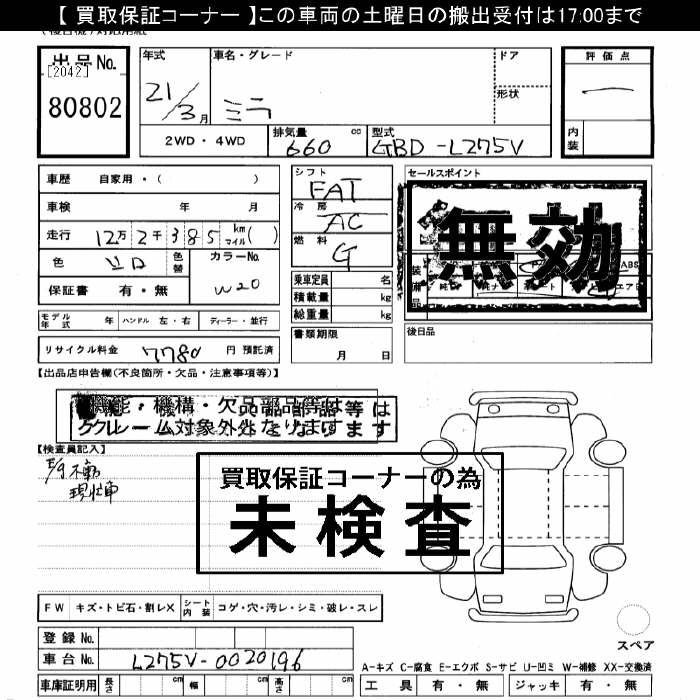 【 買取保証コーナー 】この車両の土曜日の搬出受付は17:00まで
出品No.
[2042]
80802
年式
21/3月
車名・グレード
ミラ
ドア
形状
評価点
内装
2WD・4WD
排気量 660 cc
型式 GBD-L275V
車歴 自家用・( )
車検 年 月
走行 12万2千385 km マイル( )
色 シロ 色替
カラーNo. W20
保証書 有・無
モデル年式 年 ハンドル 左・右 ディーラー・並行
リサイクル料金 7780 円 預託済
シフト FAT
冷房 AC
燃料 G
乗車定員 名
積載量 kg
総重量 kg
書類期限
月 日
セールスポイント
無効
ABS
後日品
【出品店申告欄(不良箇所・欠品・注意事項等)】
機能・機構・欠品部品等は
クレーム対象外となります
【検査員記入】
E/g不動
現状車
買取保証コーナーの為
未検査
FW キズ・トビ石・割レX シート内装 コゲ・穴・汚レ・シミ・破レ・スレ
登録No.
車台No. L275V-0020196
車庫証明用 長さ cm 幅 cm 高さ cm
スペア
A-キズ C-腐食 E-エクボ S-サビ U-凹ミ W-補修 XX-交換済
工具 有・無 ジャッキ 有・無